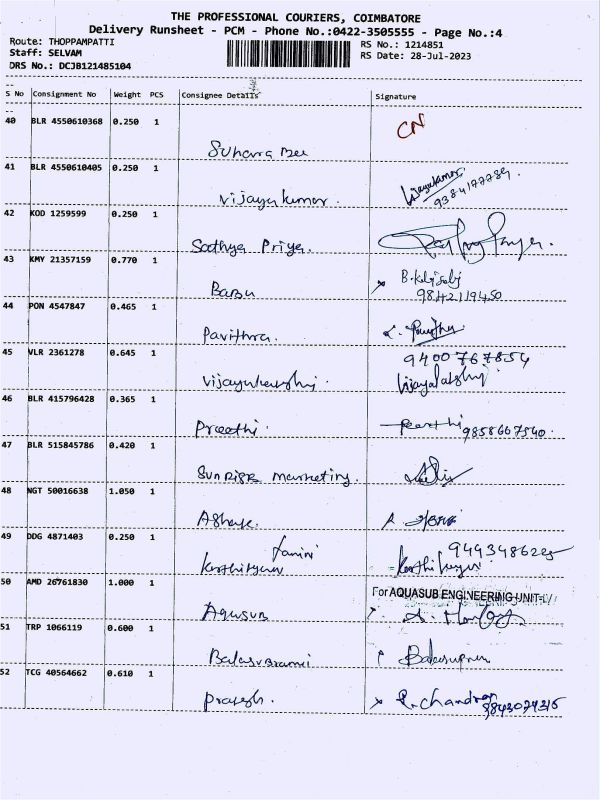 THE PROFESSIONAL COURIERS, COIMBATORE
Delivery Runsheet - PCM - Phone No.:0422-3505555 - Page No.:4
Route: THOPPAMPATTI
Staff: SELVAM
DRS No.: DCJB121485104
RS No.: 1214851
RS Date: 28-Jul-2023
S No Consignment No Weight PCS Consignee Details Signature
40 BLR 4550610368 0.250 1
CN
41 BLR 4550610405 0.250 1
Vijayakumar
9384177789.
Vijayakumar.
42 KOD 1259599 0.250 1
Sathya Priya.
43 KMY 21357159 0.770 1
Babu
9842119450
44 PON 4547847 0.465 1
Pavithra.
45 VLR 2361278 0.645 1
9400767854
Vijayalakshmi
46 BLR 415796428 0.365 1
Preethi.
9858667540.
47 BLR 515845786 0.420 1
Sunrise marketing.
48 NGT 50016638 1.050 1
Ashok.
49 DDG 4871403 0.250 1
50 AMD 26761830 1.000 1
For AQUASUB ENGINEERING UNIT-
Aquasub
51 TRP 1066119 0.600 1
Balasubramani
52 TCG 40564662 0.610 1
Prakash.
R. Chandran
9843074316